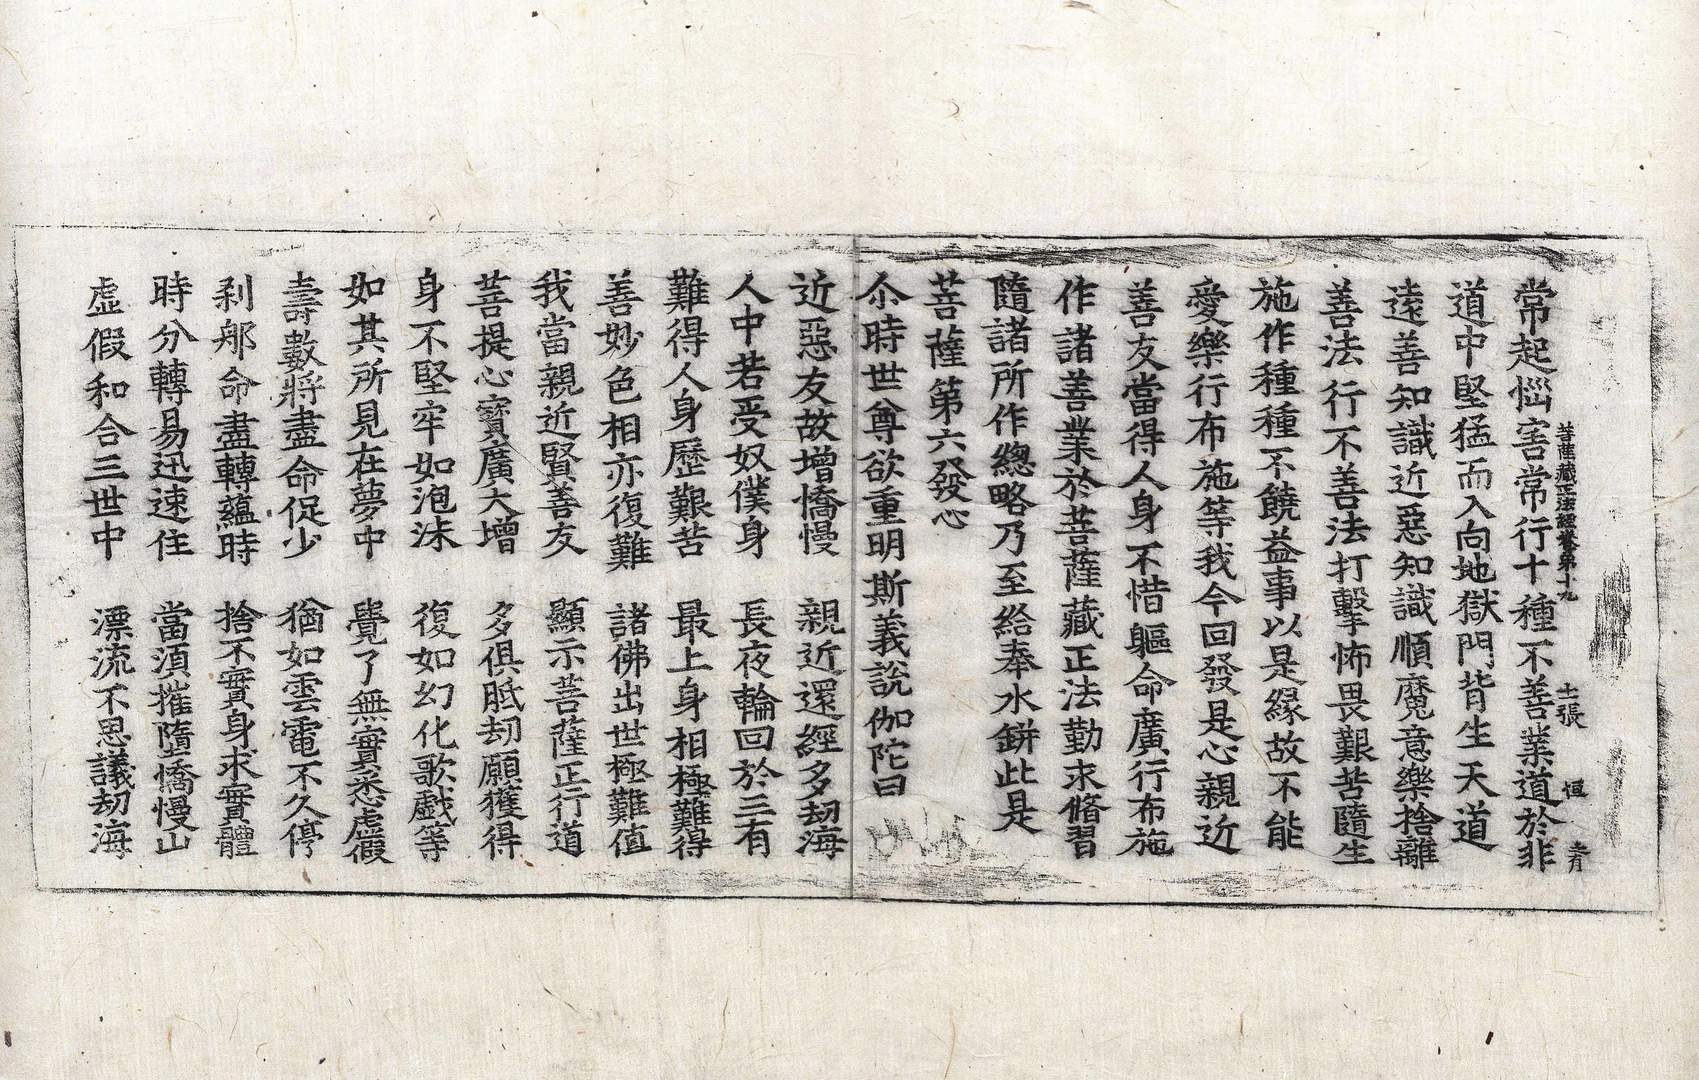 菩薩藏正法經卷第十九 十一張 恒
常起惱害常行十種不善業道於非
道中堅猛而入向地獄門背生天道
遠善知識近惡知識順魔意樂捨離
善法行不善法打擊怖畏艱苦隨生
施作種種不饒益事以是緣故不能
愛樂行布施等我今回發是心親近
善友當得人身不惜軀命廣行布施
作諸善業於菩薩藏正法勤求脩習
隨諸所作緫略乃至給奉水缾此是
菩薩第六發心
尒時世尊欲重明斯義說伽陀曰
近惡友故增憍慢 親近還經多劫海
人中若受奴僕身 長夜輪回於三有
難得人身歷艱苦 最上身相極難得
善妙色相亦復難 諸佛出世極難值
我當親近賢善友 顯示菩薩正行道
菩提心寶廣大增 多俱胝劫願獲得
身不堅牢如泡沫 復如幻化歌戲等
如其所見在夢中 覺了無實悉虛假
壽數將盡命促少 猶如雲電不久停
剎那命盡轉蘊時 捨不實身求實體
時分轉易迅速住 當湏摧墮憍慢山
虛假和合三世中 漂流不思議劫海